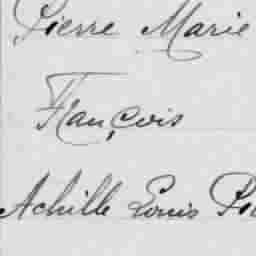 Pierre Marie
François
Achille Louis